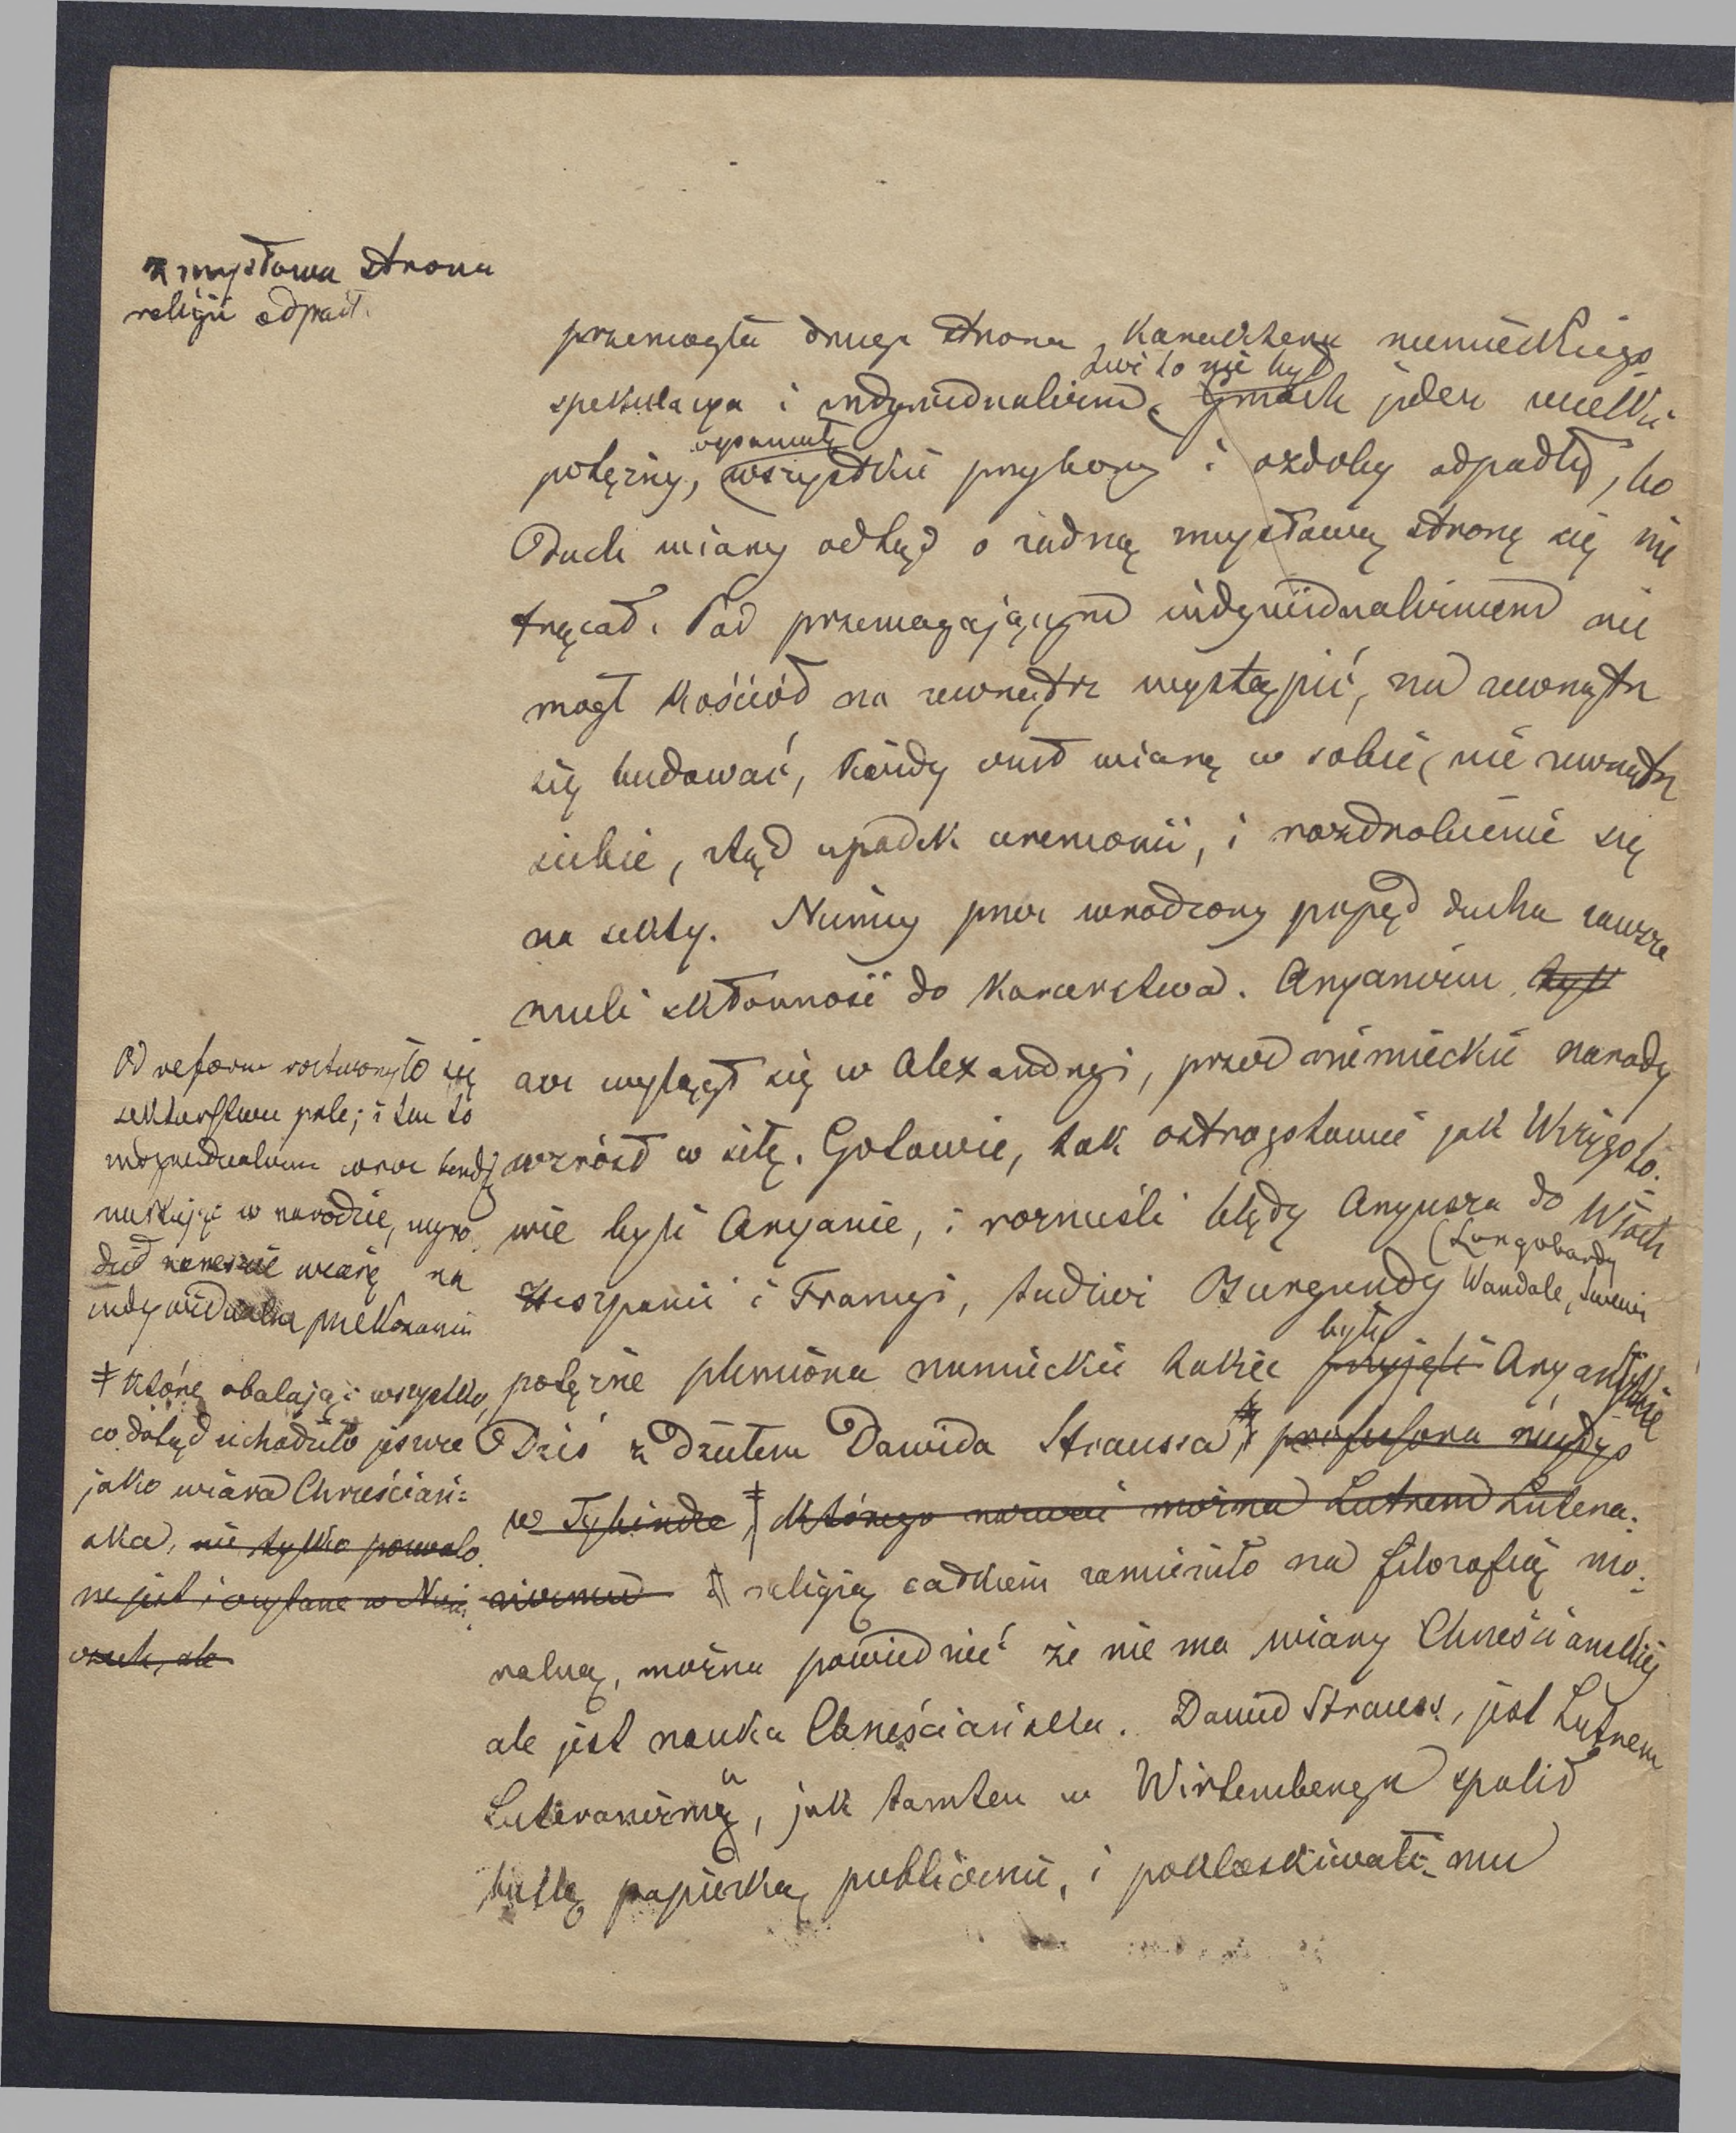 zmysłowa strona
religii odpadł.
przemogła druga strona karakteru niemieckiego
spekulacya i indywidualizm, Gmach jeden wielki
już to nie był
potężny, wszystkie przybory i ozdoby odpadły, bo
Duch wiary odtąd o żadną zmysłową stronę się nie
trącał. Pod przemagającym indywidualizmem nie
mogł kościół na zewnątrz wystąpić, na zewnątrz
się budować, każdy czuł wiarę w sobie, nie zewnątrz
siebie, stąd upadek ceremonii, i rozdrobienie się
na sekty. Niemcy przez wrodzony popęd ducha zawsze
mieli skłonność do kacerstwa. Aryanizm był
acz wylągł się w Alexandryi, przez niemieckie narody
wzrósł w siłę. Gotowie, tak ostrogotowie jak Wizygoto-
wie byli Aryanie, i roznieśli błędy Aryusza do Włoch
Hiszpanii i Francyi, tudzież Burgundy (Longobardy
Wandale, Swewi
potężne plemiona niemieckie także przyjęli Aryan
byli
Dziś z dziełem Dawida Straussa profesora niegdyś
w Tybindze, którego nazwać można Lutrem Lutera-
nizmu religią całkiem zamieniło na filozofią mo-
ralną, można powiedzieć że nie ma wiary Chrześciańskiej
ale jest nauka Chrześciańska. Dawid Strauss, jest Lutrem
Luteranizmu, jak tamten w Wirtembergu spalił
bullę papieską publicznie, i poklaskiwali mu
Od reform roztworzyło się
sektarstwu pole; i ten to
indywidualizm coraz bardziej
nurtując w narodzie, wyro-
dził nareszcie wiarę na
indywidualne przekonanie
‡ które obalając wszystko,
co dotąd uchodziło jeszcze
jako wiara Chrześciań-
ska, nie tylko pozwolo-
ne jest i czytane w Niem-
czech, ale